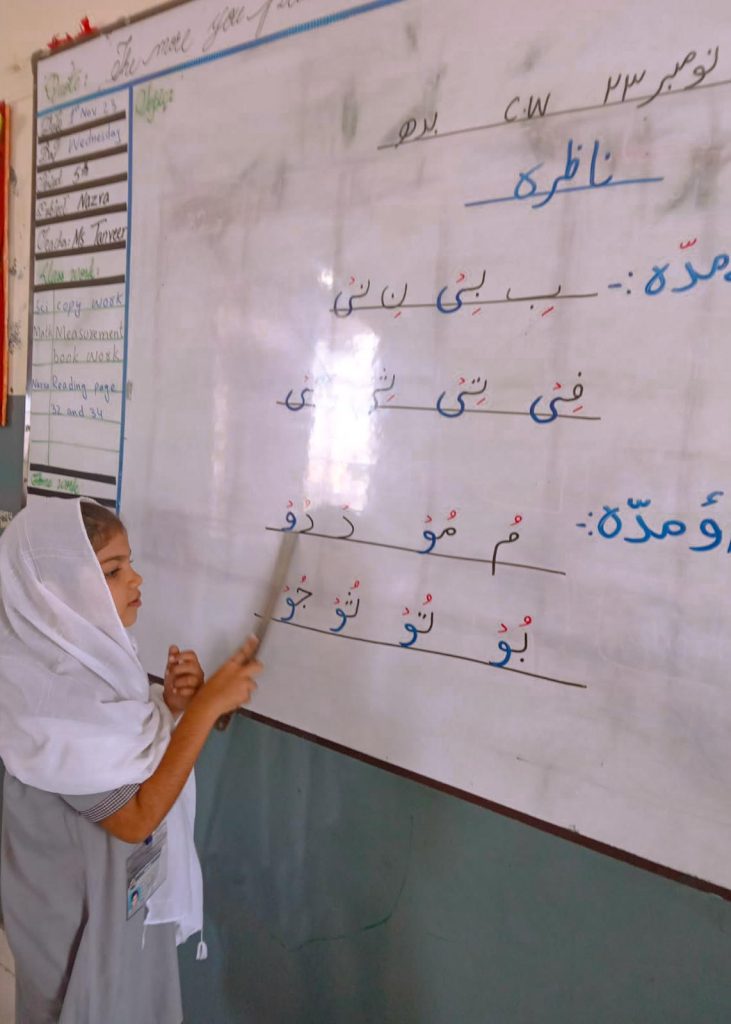 Quote: The more you
Date 1st Nov 23
Day Wednesday
Period 5th
Subject Nazra
Teacher: Ms Tanveer
Class work:
Sci copy work
Math Measurement
book work
Nazra Reading page
32 and 34
Home work
Topic:
نومبر ۲۳ C.W بدھ
ناظرہ
مدّہ :-
بِ بِیْ نِ نِیْ
فِیْ تِیْ ثِیْ
ؤ مدّہ :-
مُ مُوْ دُ دُوْ
بُوْ تُوْ ثُوْ جُوْ